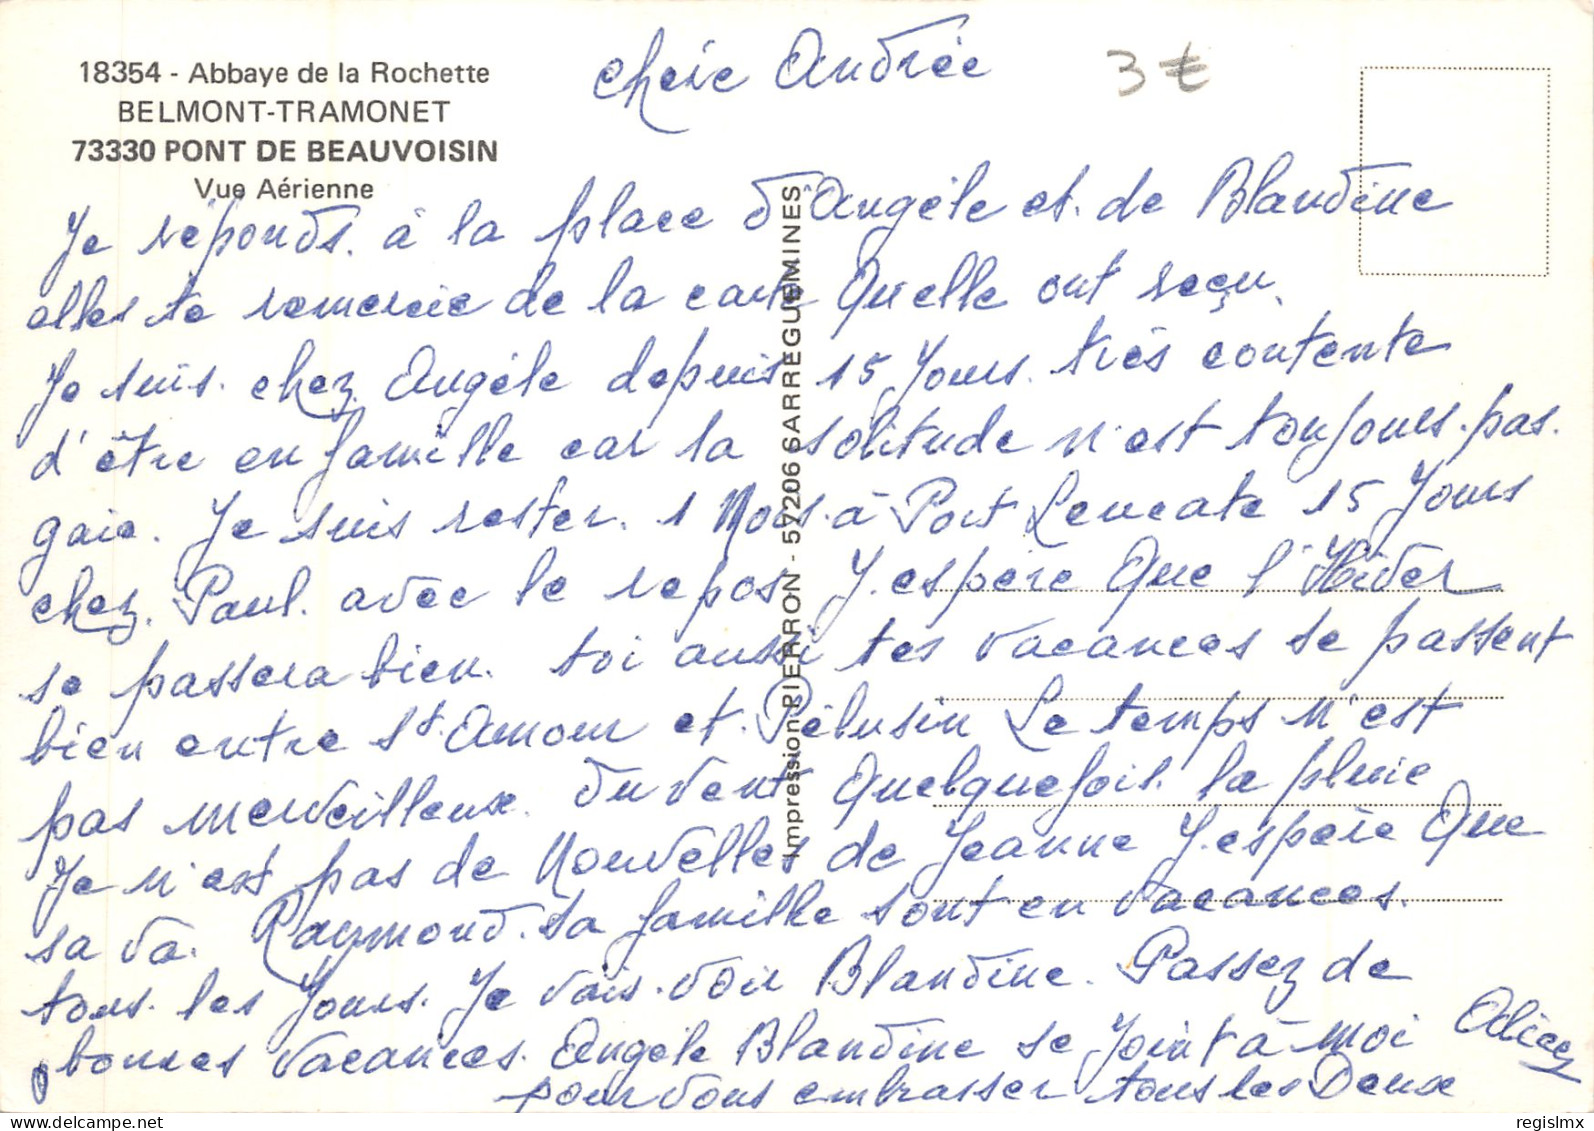 18354 - Abbaye de la Rochette
BELMONT-TRAMONET
73330 PONT DE BEAUVOISIN
Vue Aérienne
chère Andrée
3 €
Je réponds. à la place d'Angèle et. de Blandine
elles te remercie de la carte Quelle ont reçu.
Je suis. chez Angèle depuis 15 Jours. très contente
d'être en famille car la solitude n'est toujours. pas.
gaie. Je suis rester. 1 Mois. à Port Leucate 15 Jours
chez. Paul. avec le repos J. espère Que l'Hiver
se passera bien. toi aussi tes vacances se passent
bien entre St. Amour et. Pélusin Le temps n'est
pas merveilleux. du vent Quelquefois. la pluie
Je n'est pas de Nouvelles de Jeanne J. espère Que
sa va. Raymond. sa famille sont en vacances.
tous. les Jours. Je vais. voir Blandine. Passez de
bonnes vacances. Angèle Blandine se Joint à moi
pour vous embrasser tous les Deux
Alice
Impression PIERRON - 57206 SARREGUEMINES
regislmx